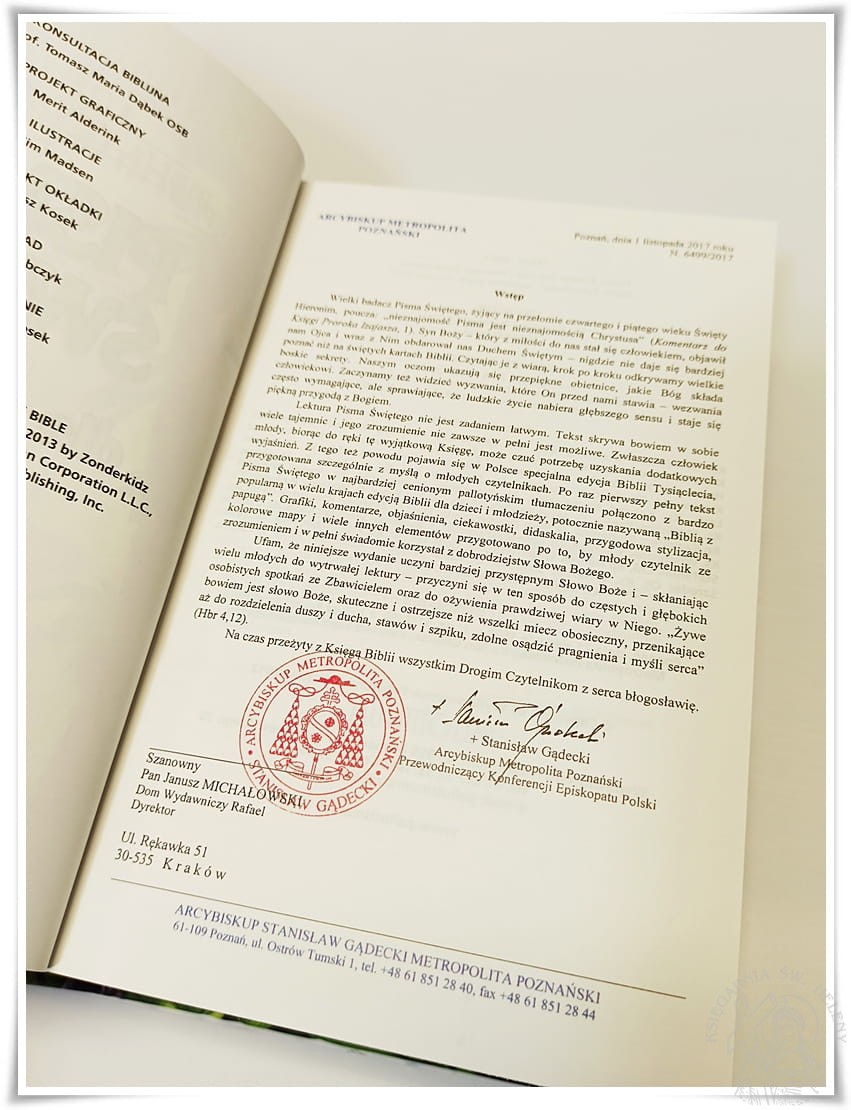 KONSULTACJA BIBLIJNA
of. Tomasz Maria Dąbek OSB
PROJEKT GRAFICZNY
Merit Alderink
ILUSTRACJE
im Madsen
KT OKŁADKI
sz Kosek
AD
bczyk
NIE
osek
BIBLE
2013 by Zonderkidz
n Corporation L.L.C.,
blishing, Inc.
ARCYBISKUP METROPOLITA
POZNAŃSKI
Poznań, dnia 1 listopada 2017 roku
N. 6499/2017
Wstęp
Wielki badacz Pisma Świętego, żyjący na przełomie czwartego i piątego wieku Święty
Hieronim, poucza: „nieznajomość Pisma jest nieznajomością Chrystusa” (Komentarz do
Księgi Proroka Izajasza, 1). Syn Boży – który z miłości do nas stał się człowiekiem, objawił
nam Ojca i wraz z Nim obdarował nas Duchem Świętym – nigdzie nie daje się bardziej
poznać niż na świętych kartach Biblii. Czytając je z wiarą, krok po kroku odkrywamy wielkie
boskie sekrety. Naszym oczom ukazują się przepiękne obietnice, jakie Bóg składa
człowiekowi. Zaczynamy też widzieć wyzwania, które On przed nami stawia – wezwania
często wymagające, ale sprawiające, że ludzkie życie nabiera głębszego sensu i staje się
piękną przygodą z Bogiem.
Lektura Pisma Świętego nie jest zadaniem łatwym. Tekst skrywa bowiem w sobie
wiele tajemnic i jego zrozumienie nie zawsze w pełni jest możliwe. Zwłaszcza człowiek
młody, biorąc do ręki tę wyjątkową Księgę, może czuć potrzebę uzyskania dodatkowych
wyjaśnień. Z tego też powodu pojawia się w Polsce specjalna edycja Biblii Tysiąclecia,
przygotowana szczególnie z myślą o młodych czytelnikach. Po raz pierwszy pełny tekst
Pisma Świętego w najbardziej cenionym pallotyńskim tłumaczeniu połączono z bardzo
popularną w wielu krajach edycją Biblii dla dzieci i młodzieży, potocznie nazywaną „Biblią z
papugą”. Grafiki, komentarze, objaśnienia, ciekawostki, didaskalia, przygodowa stylizacja,
kolorowe mapy i wiele innych elementów przygotowano po to, by młody czytelnik ze
zrozumieniem i w pełni świadomie korzystał z dobrodziejstw Słowa Bożego.
Ufam, że niniejsze wydanie uczyni bardziej przystępnym Słowo Boże i – skłaniając
wielu młodych do wytrwałej lektury – przyczyni się w ten sposób do częstych i głębokich
osobistych spotkań ze Zbawicielem oraz do ożywienia prawdziwej wiary w Niego. „Żywe
bowiem jest słowo Boże, skuteczne i ostrzejsze niż wszelki miecz obosieczny, przenikające
aż do rozdzielenia duszy i ducha, stawów i szpiku, zdolne osądzić pragnienia i myśli serca”
(Hbr 4,12).
Na czas przeżyty z Księgą Biblii wszystkim Drogim Czytelnikom z serca błogosławię.
• ARCYBISKUP METROPOLITA POZNAŃSKI •
STANISŁAW GĄDECKI
+ Stanisław Gądecki
Arcybiskup Metropolita Poznański
Przewodniczący Konferencji Episkopatu Polski
Szanowny
Pan Janusz MICHAŁOWSKI
Dom Wydawniczy Rafael
Dyrektor
Ul. Rękawka 51
30-535 Kraków
ARCYBISKUP STANISŁAW GĄDECKI METROPOLITA POZNAŃSKI
61-109 Poznań, ul. Ostrów Tumski 1, tel. +48 61 851 28 40, fax +48 61 851 28 44
KSIĘGARNIA ŚW. HELENY